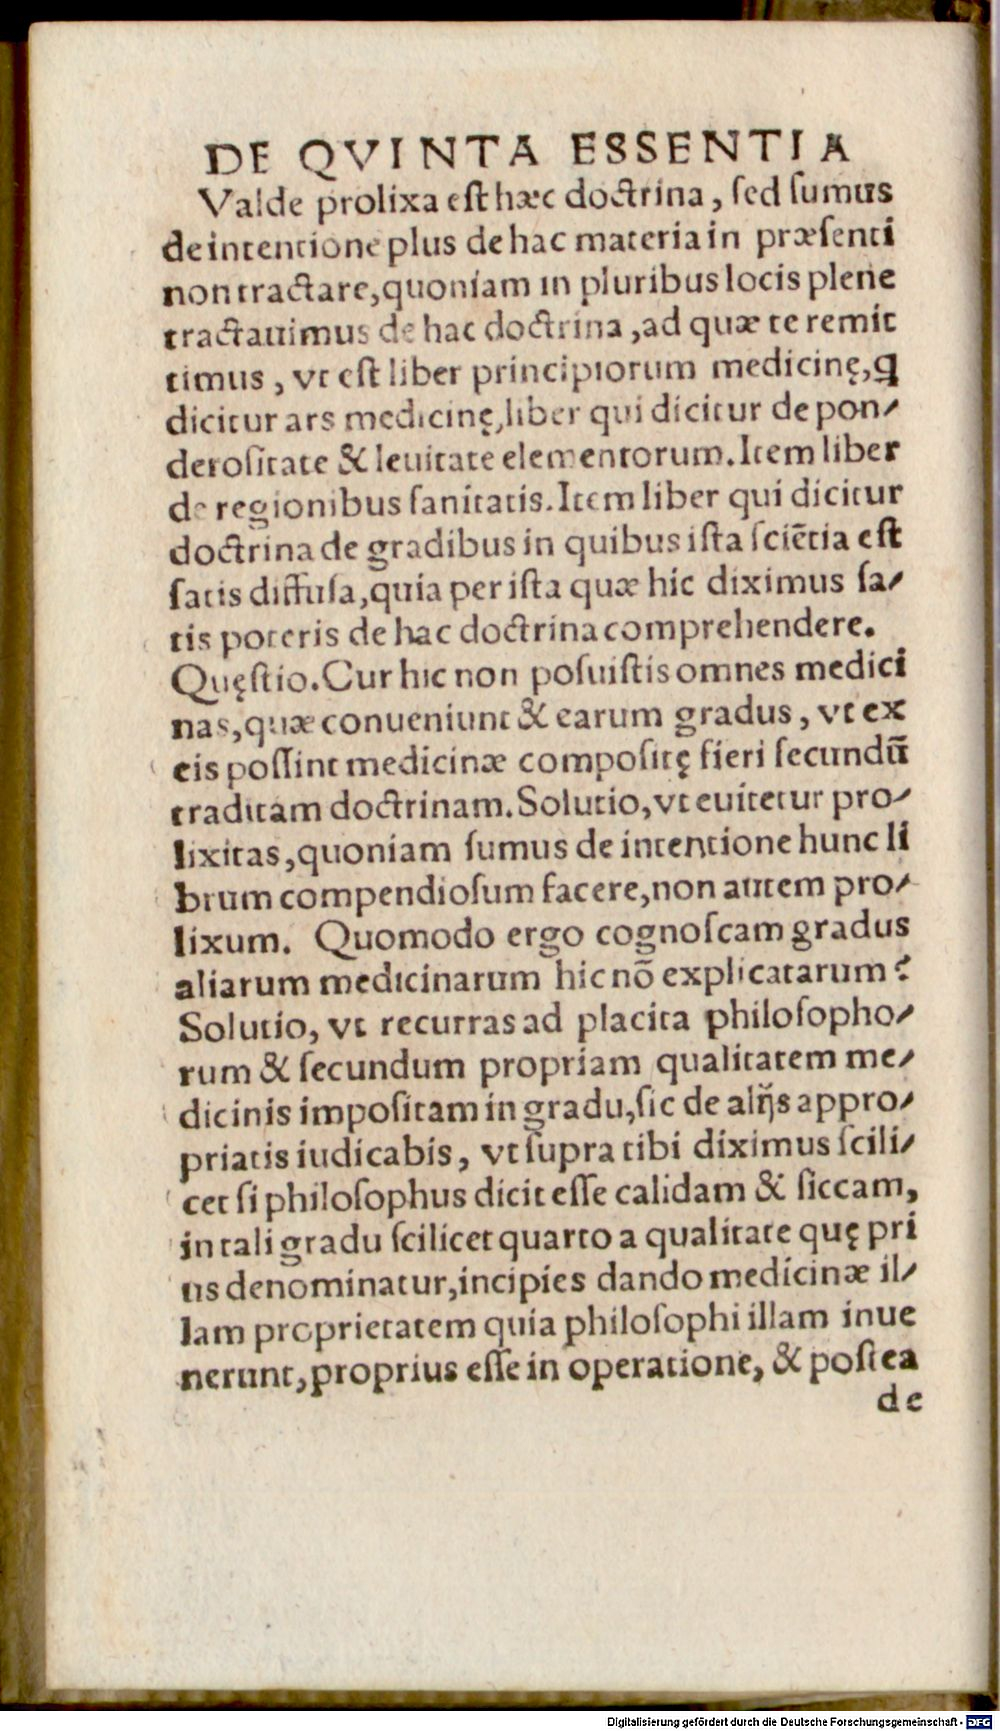 DE QVINTA ESSENTIA
Valde prolixa est hæc doctrina, sed sumus
de intentione plus de hac materia in præsenti
non tractare, quoniam in pluribus locis plene
tractauimus de hac doctrina, ad quæ te remit
timus, vt est liber principiorum medicinę, q
dicitur ars medicinę, liber qui dicitur de pon⸗
derositate & leuitate elementorum. Item liber
de regionibus sanitatis. Item liber qui dicitur
doctrina de gradibus in quibus ista sciẽtia est
satis diffusa, quia per ista quæ hic diximus sa⸗
tis poteris de hac doctrina comprehendere.
Quęstio. Cur hic non posuistis omnes medici
nas, quæ conueniunt & earum gradus, vt ex
eis possint medicinæ compositę fieri secundũ
traditam doctrinam. Solutio, vt euitetur pro⸗
lixitas, quoniam sumus de intentione hunc li
brum compendiosum facere, non autem pro⸗
lixum. Quomodo ergo cognoscam gradus
aliarum medicinarum hic nõ explicatarum?
Solutio, vt recurras ad placita philosopho⸗
rum & secundum propriam qualitatem me⸗
dicinis impositam in gradu, sic de alijs appro⸗
priatis iudicabis, vt supra tibi diximus scili⸗
cet si philosophus dicit esse calidam & siccam,
in tali gradu scilicet quarto a qualitate quę pri
us denominatur, incipies dando medicinæ il⸗
lam proprietatem quia philosophi illam inue
nerunt, proprius esse in operatione, & postea
de
Digitalisierung gefördert durch die Deutsche Forschungsgemeinschaft - DFG